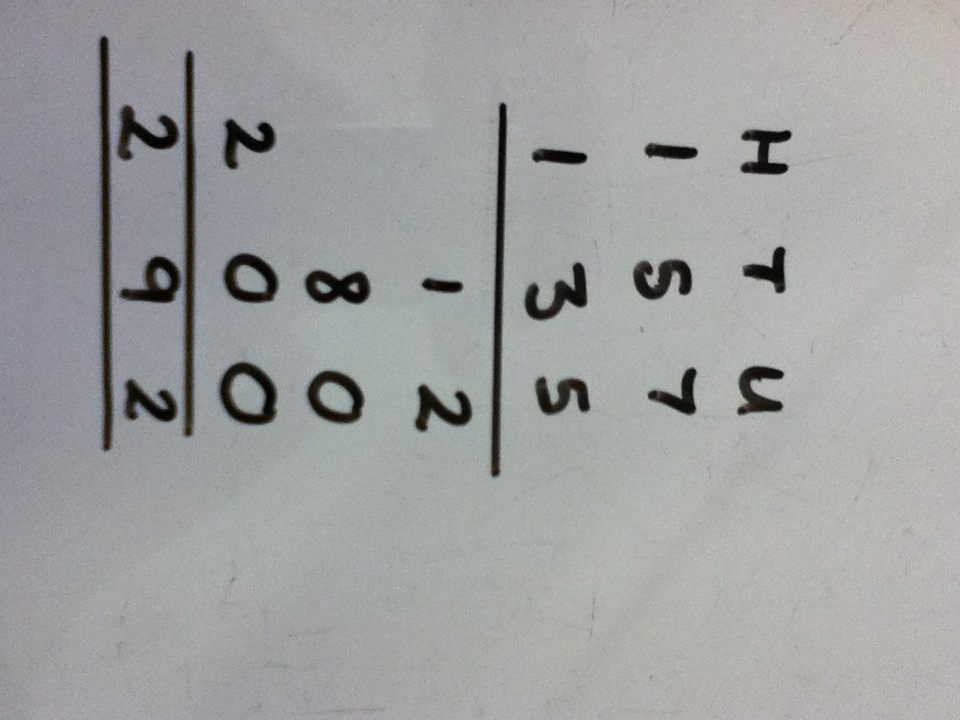 H T U
1 5 7
1 3 5
1 2
8 0
2 0 0
2 9 2